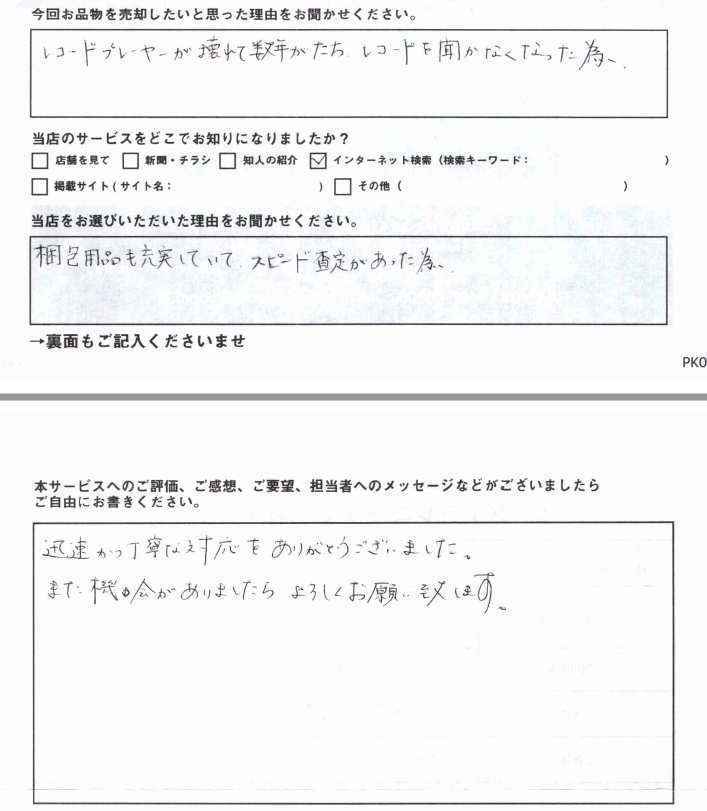 今回お品物を売却したいと思った理由をお聞かせください。
レコードプレーヤーが壊れて数年がたち、レコードを聞かなくなった為、
当店のサービスをどこでお知りになりましたか？
□ 店舗を見て □ 新聞・チラシ □ 知人の紹介 ☑ インターネット検索（検索キーワード： ）
□ 掲載サイト（サイト名： ） □ その他（ ）
当店をお選びいただいた理由をお聞かせください。
梱包用品も充実していて、スピード査定があった為、
→裏面もご記入くださいませ
PK0
本サービスへのご評価、ご感想、ご要望、担当者へのメッセージなどがございましたら
ご自由にお書きください。
迅速かつ丁寧な対応をありがとうございました。
また機会がありましたらよろしくお願い致します。